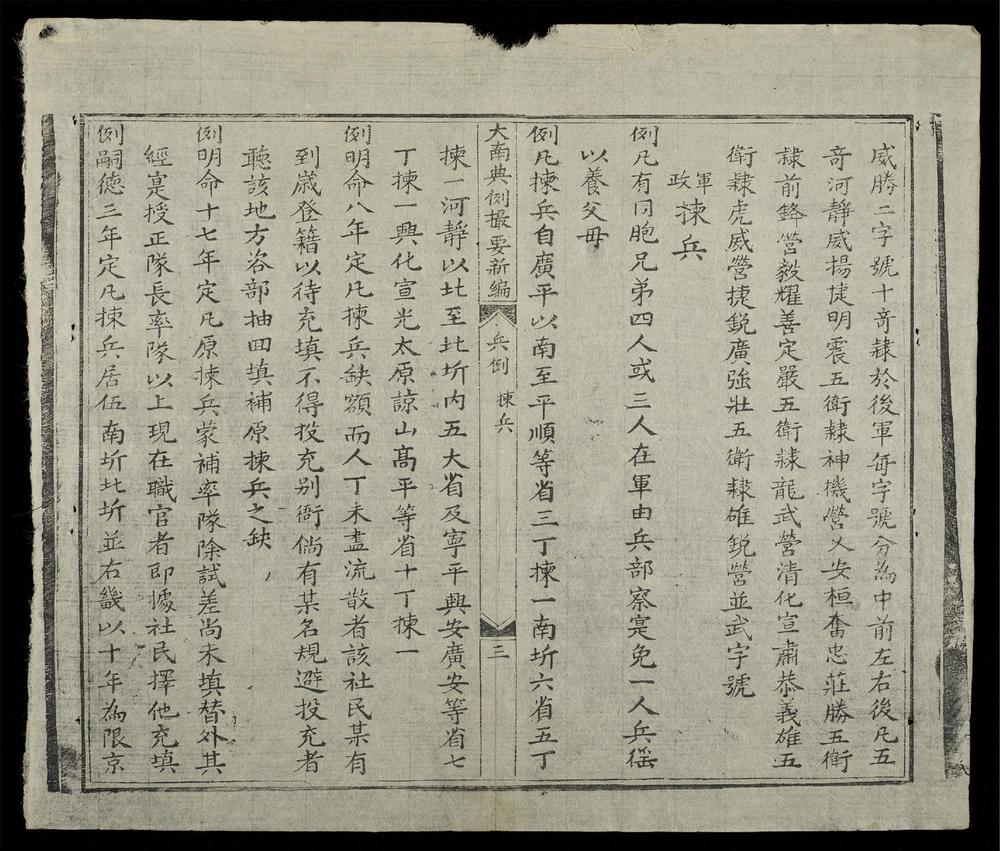 威勝二字號十奇隸於後軍每字號分為中前左右後凡五
奇河靜威揚捷明震五衛隸神機營乂安桓奮忠莊勝五衛
隸前鋒營毅耀善定嚴五衛隸龍武營清化宣肅恭義雄五
衛隸虎威營捷銳廣強壯五衛隸雄銳營並武字號
軍政 揀兵
例凡有同胞兄弟四人或三人在軍由兵部察寔免一人兵徭
以養父母
例凡揀兵自廣平以南至平順等省三丁揀一南圻六省五丁
大南典例撮要新編 兵例 揀兵 三
揀一河靜以北至北圻内五大省及寧平興安廣安等省七
丁揀一興化宣光太原諒山高平等省十丁揀一
例明命八年定凡揀兵缺額而人丁未盡流散者該社民某有
到歲登籍以待充填不得投充别衙倘有某名規避投充者
聽該地方咨部抽囬填補原揀兵之缺
例明命十七年定凡原揀兵蒙補率隊除試差尚未填替外其
經寔授正隊長率隊以上現在職官者即據社民擇他充填
例嗣德三年定凡揀兵居伍南圻北圻並右畿以十年為限京